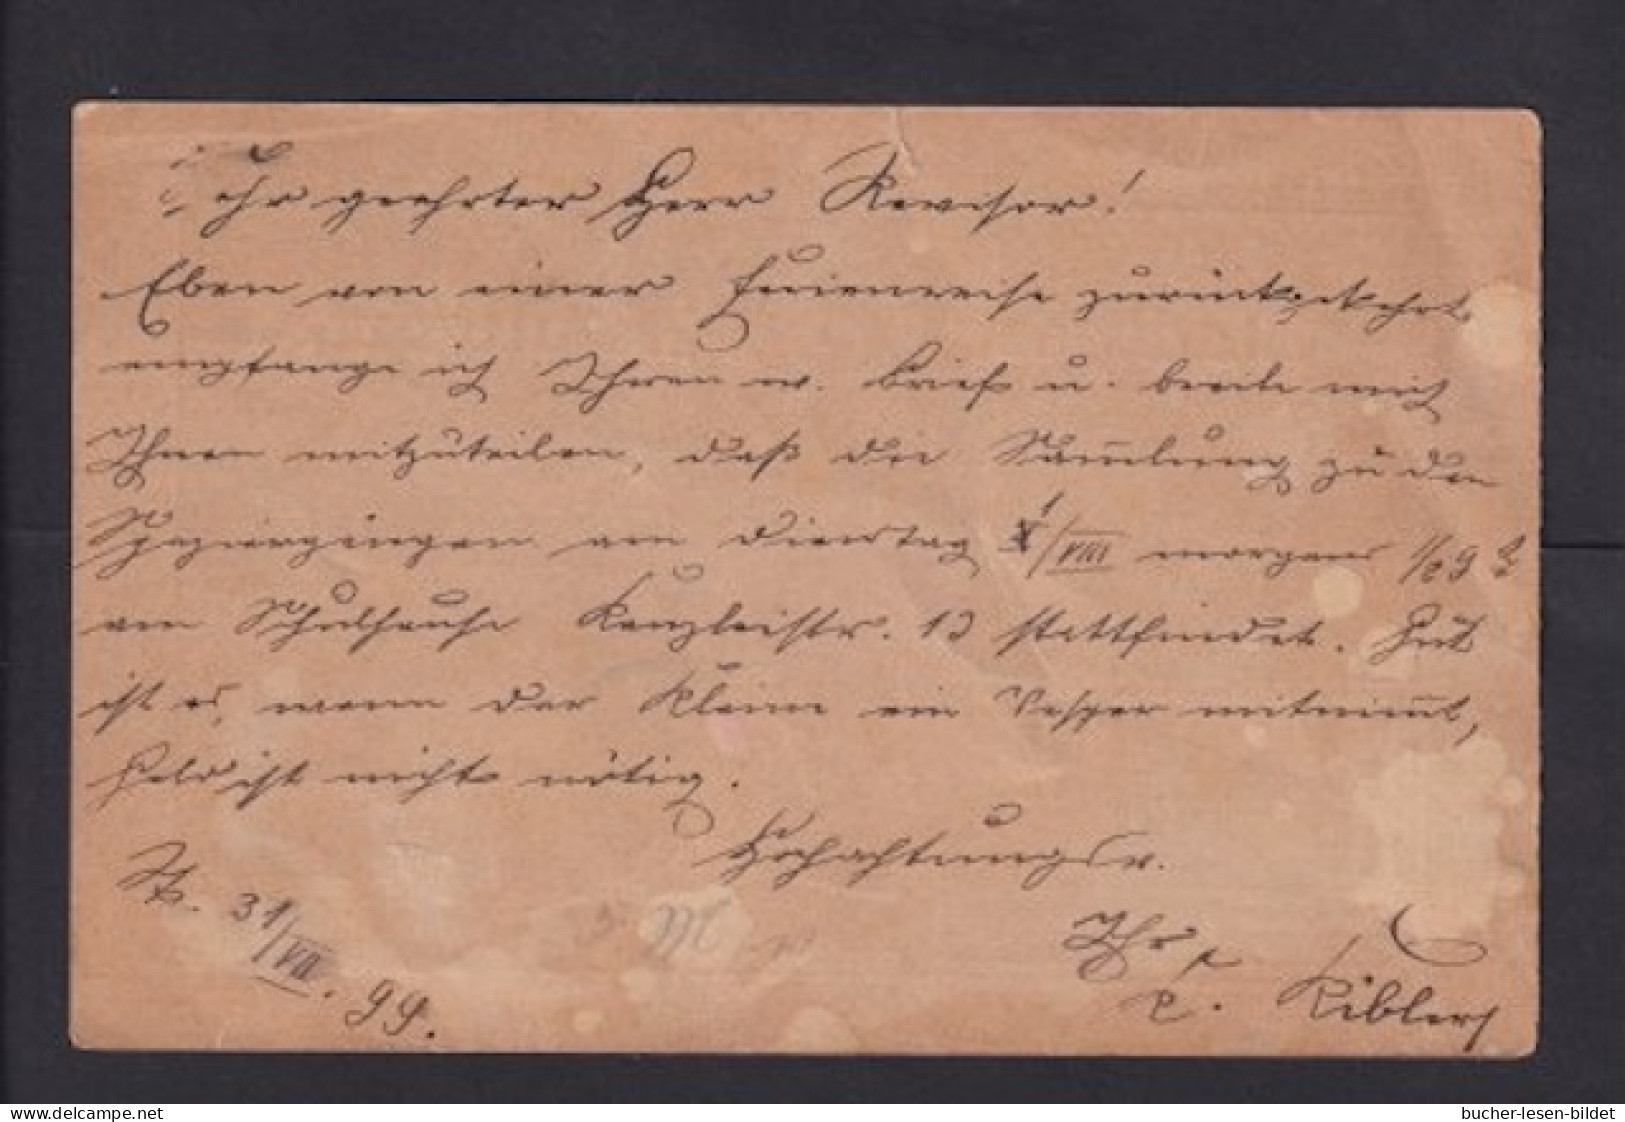 Sehr geehrter Herr Revisor!
Eben von einer Ferienreise zurückgekehrt
empfange ich Ihren w. Brief u. beeile mich
Ihnen mitzuteilen, daß die Sammlung zu den
Spaziergängen am Dienstag 1/VIII morgens 1/2 9
im Schulhause Kanzleistr. 13 stattfindet. Gut
ist es, wenn der Kleine ein Vesper mitnimmt,
Geld ist nicht nötig.
Hochachtungsv.
St. 31/VII. 99.
Ihr
E. Kibler
delcampe.net
bucher-lesen-bildet